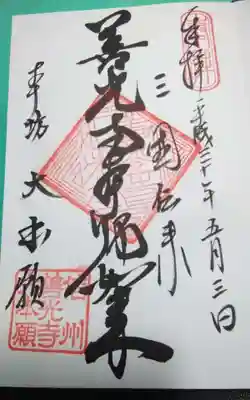 奉拝
平成三十年五月三日
三國伝来
善光寺
本坊 大本願
信州
善光寺
大本願